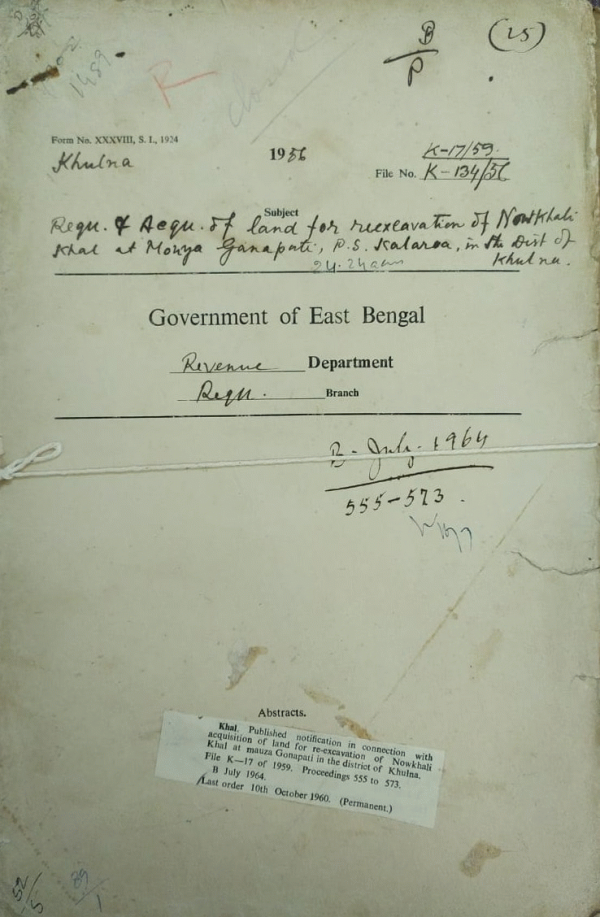 B
P
(25)
R
closed
Form No. XXXVIII, S. I., 1924
Khulna
1956
K-17/59
File No. K-134/56
Subject
Requ. & Acqu. of land for reexcavation of Nowkhali
Khal at Mouya Ganapati, P.S. Kalaroa, in the Dist of
Khulna.
24.24 acres
Government of East Bengal
Revenue Department
Requ. Branch
B- July- 1964
555-573.
Abstracts.
Khal. Published notification in connection with
acquisition of land for re-excavation of Nowkhali
Khal at mauza Gonapati in the district of Khulna.
File K—17 of 1959. Proceedings 555 to 573.
B July 1964.
Last order 10th October 1960. (Permanent.)
52/5
89/1